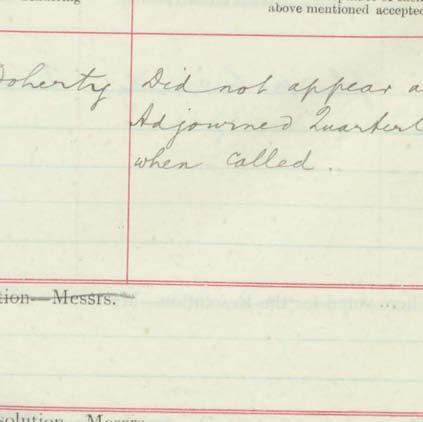 above mentioned accepted
Doherty Did not appear a
Adjourned Quarterl
when called.
tion—Messrs.
solution—Messrs.